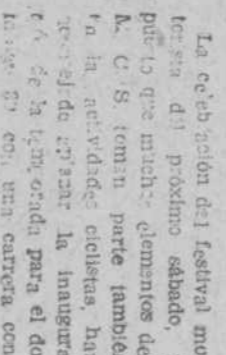 La celebración del festival mo
del próximo sábado,
que muchos elementos de
M. C. S. toman parte también
actividades ciclistas, ha
la inaugura
de la temporada para el do
con una carrera con